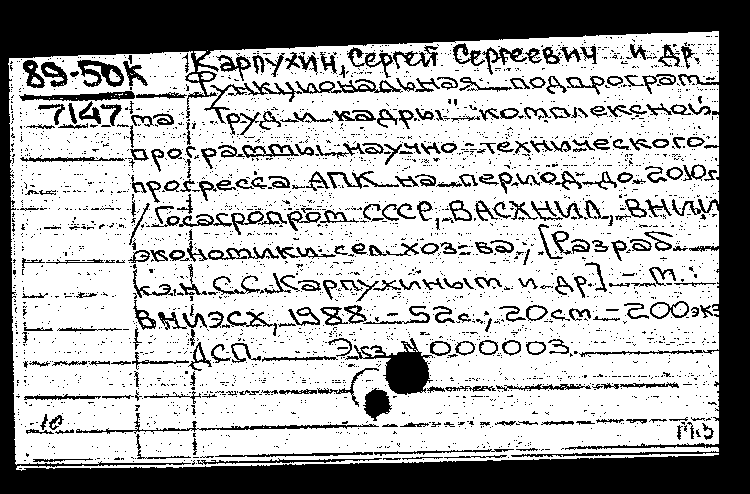 89-50к Карпухин, Сергей Сергеевич и др.
Функциональная подпрограм-
7147 ма "Труд и кадры" комплексной
программы научно-технического
прогресса АПК на период до 2010г.
/ Госагропром СССР, ВАСХНИЛ, ВНИИ
экономики сел. хоз-ва; [Разраб.
к.э.н. С.С. Карпухиным и др.] - М.:
ВНИЭСХ, 1988. - 52с.; 20см. - 200экз
ДСП. Экз. N 000003
10
М.5